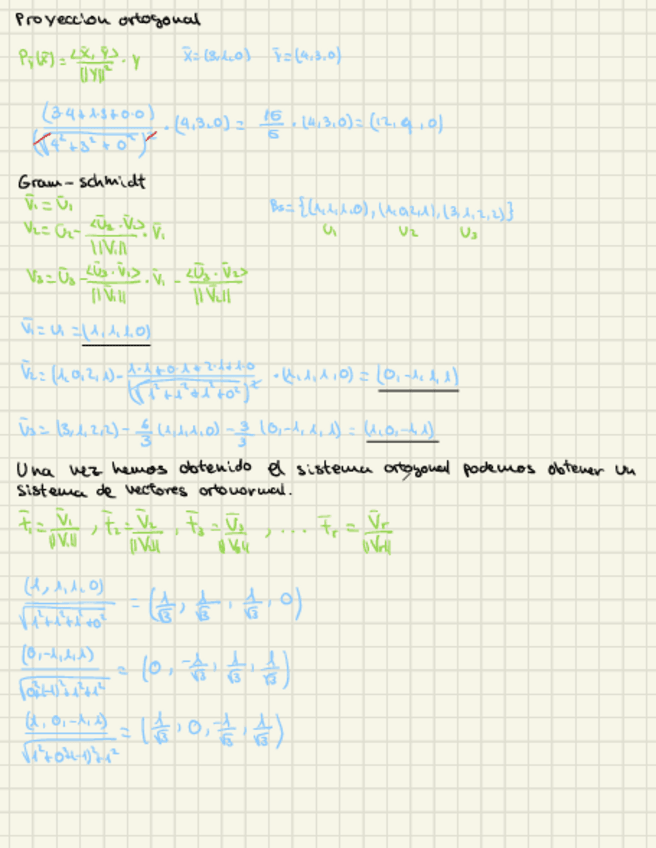 Proyeccion ortogonal
Pȳ(x̄) = <x̄, ȳ> / ||Y||² · y    x̄ = (3,1,0)    ȳ = (4,3,0)
(3·4+1·3+0·0) / (√4²+3²+0²)² · (4,3,0) = 15/5 · (4,3,0) = (12, 9, 0)
Gram-schmidt
v̄₁ = ū₁
Bs = {(1,1,1,0), (1,0,2,1), (3,1,2,2)}
v₂ = ū₂ - <ū₂ · v̄₁> / ||v̄₁|| · v̄₁
u₁ u₂ u₃
v₃ = ū₃ - <ū₃ · v̄₁> / ||v̄₁|| · v̄₁ - <ū₃ · v̄₂> / ||v̄₂||
v̄₁ = u₁ = (1,1,1,0)
v̄₂ = (1,0,2,1) - 1·1+0·1+2·1+1·0 / (√1²+1²+1²+0²)² · (1,1,1,0) = (0,-1,1,1)
v̄₃ = (3,1,2,2) - 6/3 (1,1,1,0) - 3/3 (0,-1,1,1) = (1,0,-1,1)
Una vez hemos obtenido el sistema ortogonal podemos obtener un
sistema de vectores ortonormal.
f̄₁ = v̄₁/||v̄₁||, f̄₂ = v̄₂/||v̄₂||, f̄₃ = v̄₃/||v̄₃||, ... f̄r = v̄r/||v̄r||
(1,1,1,0) / √1²+1²+1²+0² = (1/√3, 1/√3, 1/√3, 0)
(0,-1,1,1) / √0²+(-1)²+1²+1² = (0, -1/√3, 1/√3, 1/√3)
(1,0,-1,1) / √1²+0²+(-1)²+1² = (1/√3, 0, -1/√3, 1/√3)